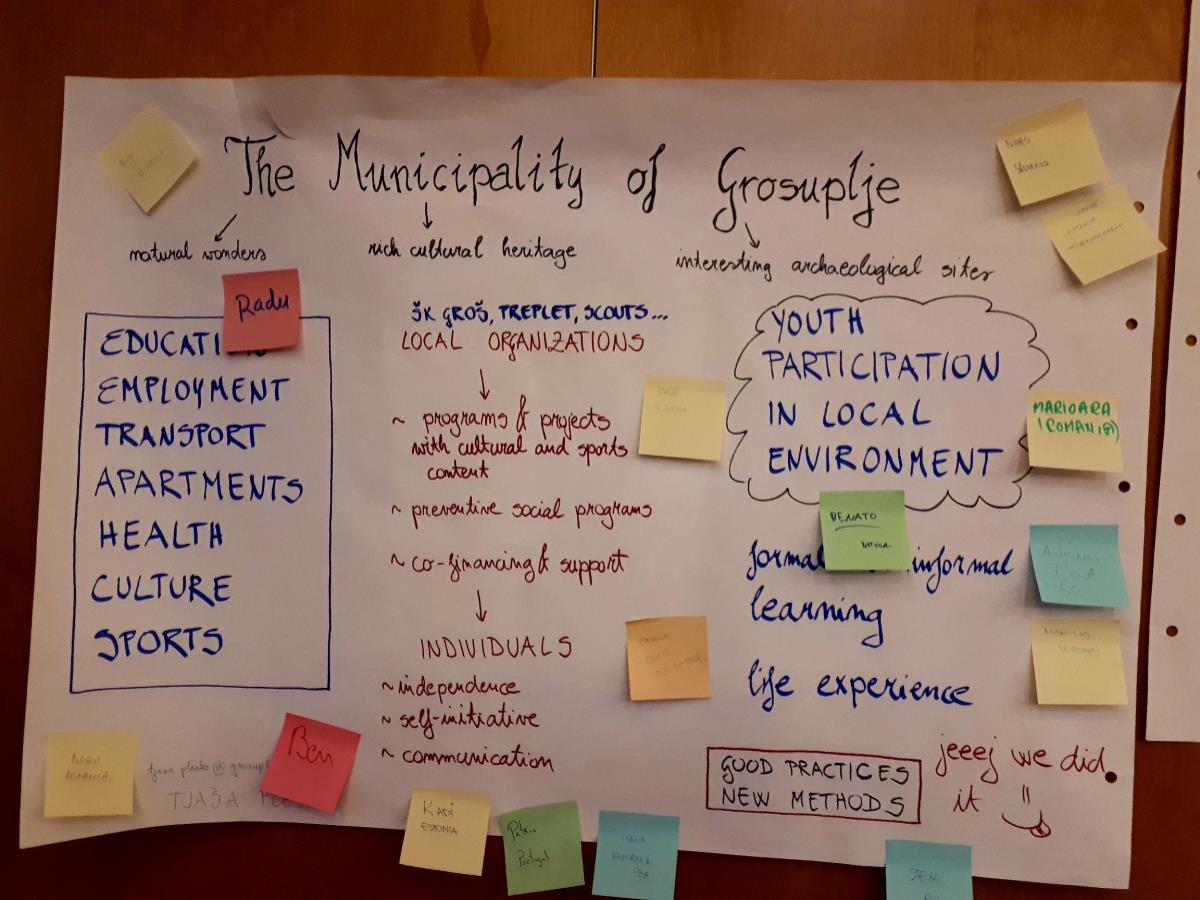 The Municipality of Grosuplje
natural wonders
rich cultural heritage
interesting archaeological sites
Radu
EDUCATI
EMPLOYMENT
TRANSPORT
APARTMENTS
HEALTH
CULTURE
SPORTS
ŠK GROŠ, TREPLET, SCOUTS...
LOCAL ORGANIZATIONS
~ programs & projects
with cultural and sports
content
~ preventive social programs
~ co-financing & support
INDIVIDUALS
~ independence
~ self-initiative
~ communication
YOUTH
PARTICIPATION
IN LOCAL
ENVIRONMENT
MARIOARA
(ROMANIA)
RENATO
formal informal
learning
life experience
GOOD PRACTICES
NEW METHODS
jeeej we did
it
Slovenia
Ben
TJAŠA
KADI
ESTONIA
Portugal